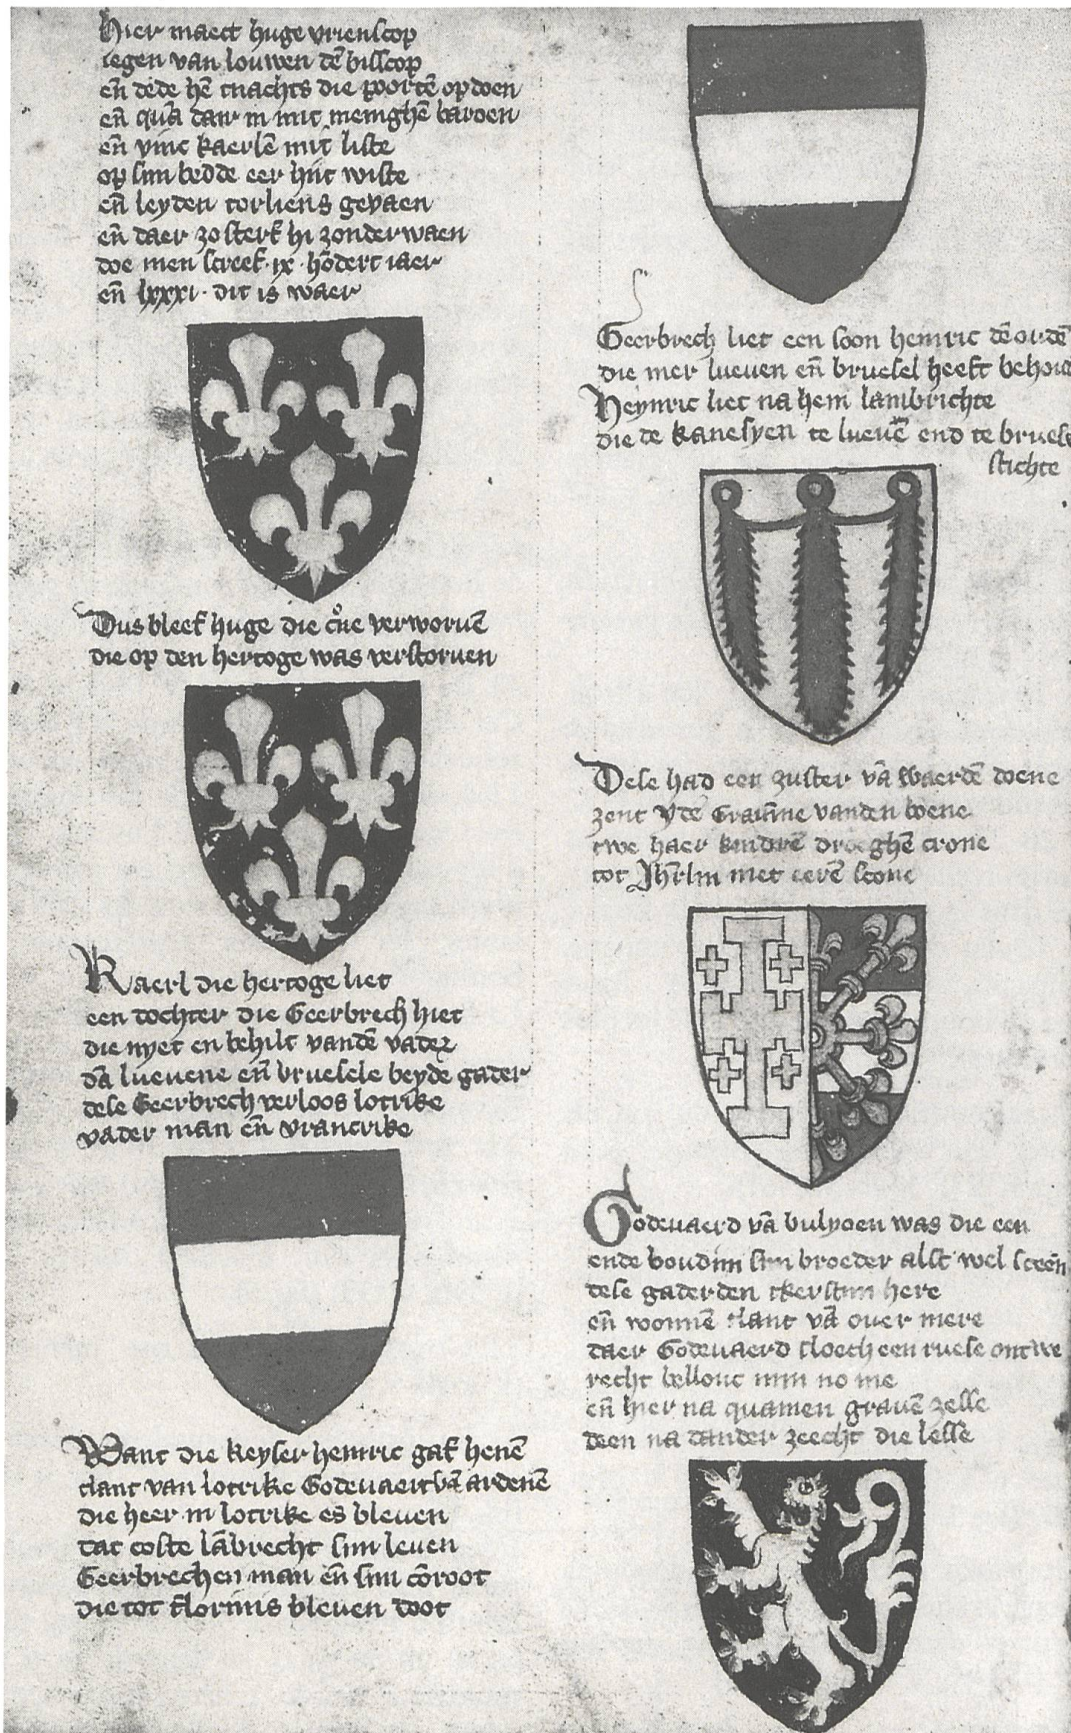 Hier maect huge vrienscop
iegen van louwen dē bisscop
eñ dede hē tnachts die poortē opdoen
eñ quā daer in mit menighē baroen
eñ vinc kaerlē mit liste
op sijn bedde eer hijt wiste
eñ leyden torliens gevaen
eñ daer zo sterf hi zonder waen
doe men screef · ix · hōdert iaer
eñ lxxxi · dit is waer
Dus bleef huge die crōe verworvē
die op den hertoge was verstorven
Kaerl die hertoge liet
een dochter die Geerbrech hiet
die nyet en behilt vandē vader
dā luevene eñ bruesele beyde gader
dese Geerbrech verloos lotrike
vader man eñ vrancrike
Want die keyser heinric gaf henē
tlant van lotrike Godevaert vā ardenē
die heer in lotrike es bleven
tat coste lābrecht sijn leven
Geerbrechen man eñ sijn cōroot
die tot florinis bleven doot
Geerbrech liet een soon heinric dē ordē
die mer lueven eñ bruesel heeft behou
Heynric liet na hem lambrichte
die de kanesyen te luevē end te bruese
stichte
Dese had een zuster vā waerdē doene
zent yde Gravīne vanden boene
twe haer kindrē droeghē crone
tot Jhrlm met eerē scone
Godevaerd vā bulyoen was die een
ende boudijn sijn broeder alst wel sceen
dese gaderden tkerstijn here
eñ wonnē tlant vā over mere
daer Godevaerd sloech een ruese ontwe
recht bellouc min no me
eñ hier na quamen gravē zesse
deen na dander zeecht die lesse